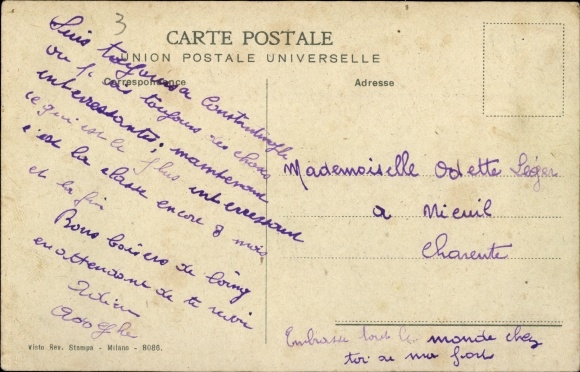 3
CARTE POSTALE
UNION POSTALE UNIVERSELLE
Correspondance
Adresse
Suis toujours a Constantinople
ou je vois toujours des choses
interessantes; maintenant
ce qui est le plus interessant
c'est la classe encore 8 mois
et la fin
Bons baisers de loing
en attendant de te revoir
Adolphe
Mademoiselle Odette Léger
a Nieuil
Charente
Embrasse tout le monde chez
toi de ma part
Visto Rev. Stampa - Milano - 8086.